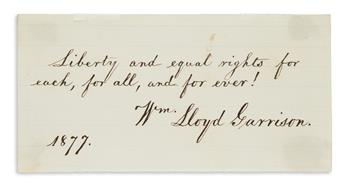 Liberty and equal rights for
each, for all, and for ever!
Wm. Lloyd Garrison.
1877.